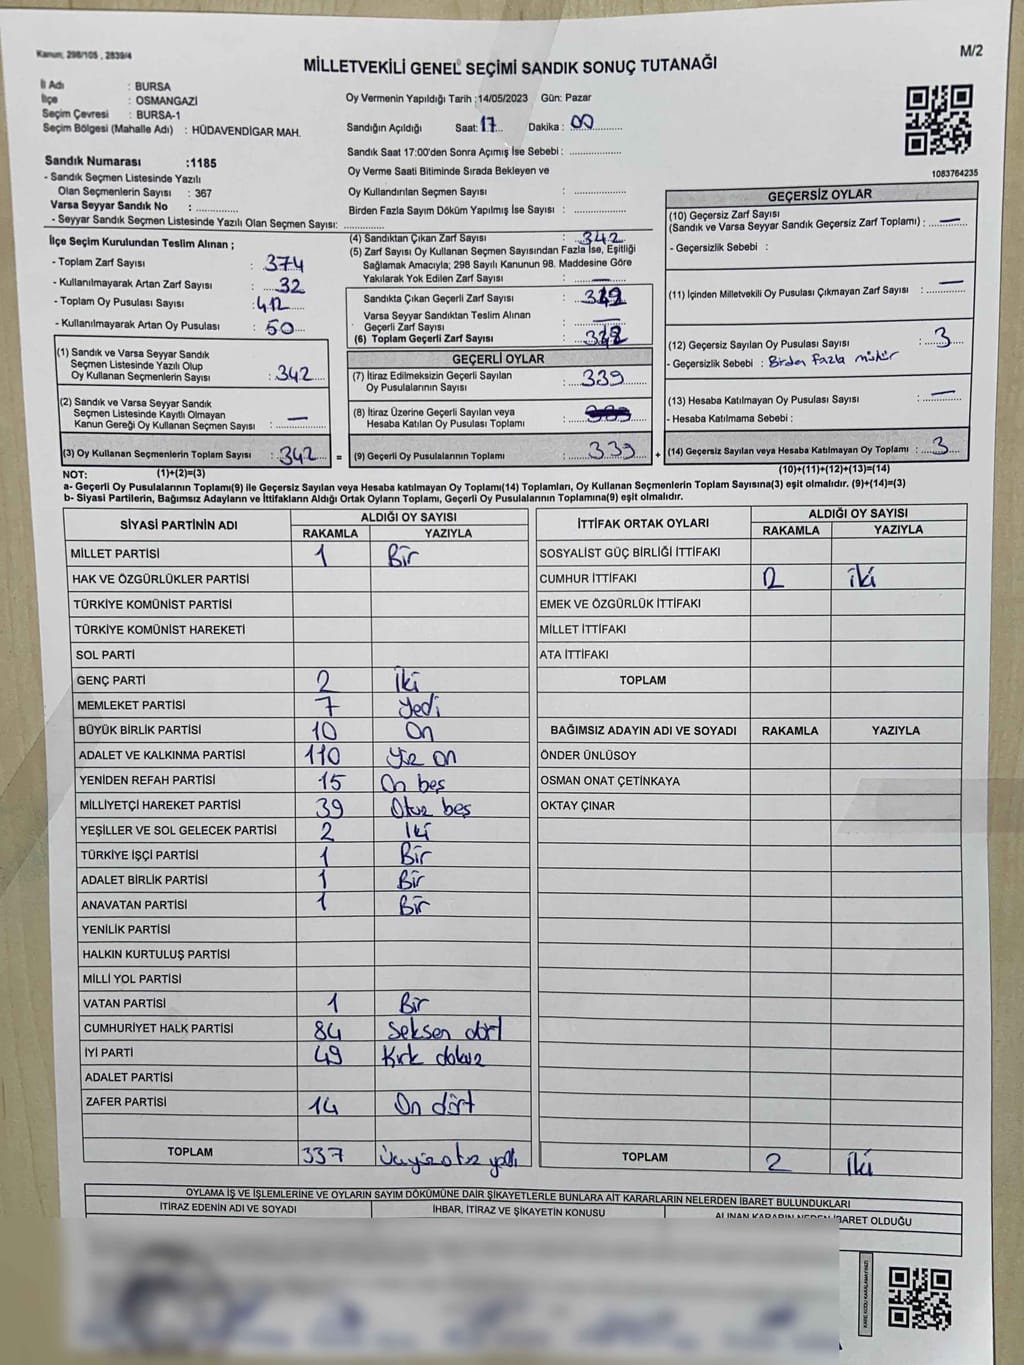 Kanun; 298/105 , 2839/4
M/2
MİLLETVEKİLİ GENEL SEÇİMİ SANDIK SONUÇ TUTANAĞI
İl Adı : BURSA
İlçe : OSMANGAZİ
Seçim Çevresi : BURSA-1
Seçim Bölgesi (Mahalle Adı) : HÜDAVENDİGAR MAH.
Oy Vermenin Yapıldığı Tarih :14/05/2023 Gün: Pazar
Sandığın Açıldığı Saat: 17 Dakika : 00
Sandık Saat 17:00'den Sonra Açımış İse Sebebi :
Oy Verme Saati Bitiminde Sırada Bekleyen ve
Oy Kullandırılan Seçmen Sayısı :
Birden Fazla Sayım Döküm Yapılmış İse Sayısı :
1083764235
Sandık Numarası :1185
- Sandık Seçmen Listesinde Yazılı
Olan Seçmenlerin Sayısı : 367
Varsa Seyyar Sandık No :
- Seyyar Sandık Seçmen Listesinde Yazılı Olan Seçmen Sayısı:
İlçe Seçim Kurulundan Teslim Alınan ;
- Toplam Zarf Sayısı : 374
- Kullanılmayarak Artan Zarf Sayısı : 32
- Toplam Oy Pusulası Sayısı : 412
- Kullanılmayarak Artan Oy Pusulası : 50
(1) Sandık ve Varsa Seyyar Sandık
Seçmen Listesinde Yazılı Olup
Oy Kullanan Seçmenlerin Sayısı : 342
(2) Sandık ve Varsa Seyyar Sandık
Seçmen Listesinde Kayıtlı Olmayan
Kanun Gereği Oy Kullanan Seçmen Sayısı : —
(3) Oy Kullanan Seçmenlerin Toplam Sayısı : 342 =
(4) Sandıktan Çıkan Zarf Sayısı : 342
(5) Zarf Sayısı Oy Kullanan Seçmen Sayısından Fazla İse, Eşitliği
Sağlamak Amacıyla; 298 Sayılı Kanunun 98. Maddesine Göre
Yakılarak Yok Edilen Zarf Sayısı : —
Sandıkta Çıkan Geçerli Zarf Sayısı :
Varsa Seyyar Sandıktan Teslim Alınan
Geçerli Zarf Sayısı : —
(6) Toplam Geçerli Zarf Sayısı :
GEÇERLİ OYLAR
(7) İtiraz Edilmeksizin Geçerli Sayılan
Oy Pusulalarının Sayısı : 339
(8) İtiraz Üzerine Geçerli Sayılan veya
Hesaba Katılan Oy Pusulası Toplamı :
(9) Geçerli Oy Pusulalarının Toplamı : 339 +
GEÇERSİZ OYLAR
(10) Geçersiz Zarf Sayısı
(Sandık ve Varsa Seyyar Sandık Geçersiz Zarf Toplamı) : —
- Geçersizlik Sebebi :
(11) İçinden Milletvekili Oy Pusulası Çıkmayan Zarf Sayısı : —
(12) Geçersiz Sayılan Oy Pusulası Sayısı : 3
- Geçersizlik Sebebi : Birden Fazla mühür
(13) Hesaba Katılmayan Oy Pusulası Sayısı : —
- Hesaba Katılmama Sebebi :
(14) Geçersiz Sayılan veya Hesaba Katılmayan Oy Toplamı : 3
NOT: (1)+(2)=(3) (10)+(11)+(12)+(13)=(14)
a- Geçerli Oy Pusulalarının Toplamı(9) ile Geçersiz Sayılan veya Hesaba katılmayan Oy Toplamı(14) Toplamları, Oy Kullanan Seçmenlerin Toplam Sayısına(3) eşit olmalıdır. (9)+(14)=(3)
b- Siyasi Partilerin, Bağımsız Adayların ve İttifakların Aldığı Ortak Oyların Toplamı, Geçerli Oy Pusulalarının Toplamına(9) eşit olmalıdır.
SİYASİ PARTİNİN ADI ALDIĞI OY SAYISI
RAKAMLA YAZIYLA
MİLLET PARTİSİ 1 Bir
HAK VE ÖZGÜRLÜKLER PARTİSİ
TÜRKİYE KOMÜNİST PARTİSİ
TÜRKİYE KOMÜNİST HAREKETİ
SOL PARTİ
GENÇ PARTİ 2 İki
MEMLEKET PARTİSİ 7 Yedi
BÜYÜK BİRLİK PARTİSİ 10 On
ADALET VE KALKINMA PARTİSİ 110 Yüz on
YENİDEN REFAH PARTİSİ 15 On beş
MİLLİYETÇİ HAREKET PARTİSİ 39 Otuz beş
YEŞİLLER VE SOL GELECEK PARTİSİ 2 İki
TÜRKİYE İŞÇİ PARTİSİ 1 Bir
ADALET BİRLİK PARTİSİ 1 Bir
ANAVATAN PARTİSİ 1 Bir
YENİLİK PARTİSİ
HALKIN KURTULUŞ PARTİSİ
MİLLİ YOL PARTİSİ
VATAN PARTİSİ 1 Bir
CUMHURİYET HALK PARTİSİ 84 Seksen dört
İYİ PARTİ 49 Kırk dokuz
ADALET PARTİSİ
ZAFER PARTİSİ 14 On dört
TOPLAM 337 Üçyüzotuz yedi
İTTİFAK ORTAK OYLARI ALDIĞI OY SAYISI
RAKAMLA YAZIYLA
SOSYALİST GÜÇ BİRLİĞİ İTTİFAKI
CUMHUR İTTİFAKI 2 iki
EMEK VE ÖZGÜRLÜK İTTİFAKI
MİLLET İTTİFAKI
ATA İTTİFAKI
TOPLAM
BAĞIMSIZ ADAYIN ADI VE SOYADI RAKAMLA YAZIYLA
ÖNDER ÜNLÜSOY
OSMAN ONAT ÇETİNKAYA
OKTAY ÇINAR
TOPLAM 2 iki
OYLAMA İŞ VE İŞLEMLERİNE VE OYLARIN SAYIM DÖKÜMÜNE DAİR ŞİKAYETLERLE BUNLARA AİT KARARLARIN NELERDEN İBARET BULUNDUKLARI
İTİRAZ EDENİN ADI VE SOYADI İHBAR, İTİRAZ VE ŞİKAYETİN KONUSU ALINAN KARARIN NEDEN İBARET OLDUĞU